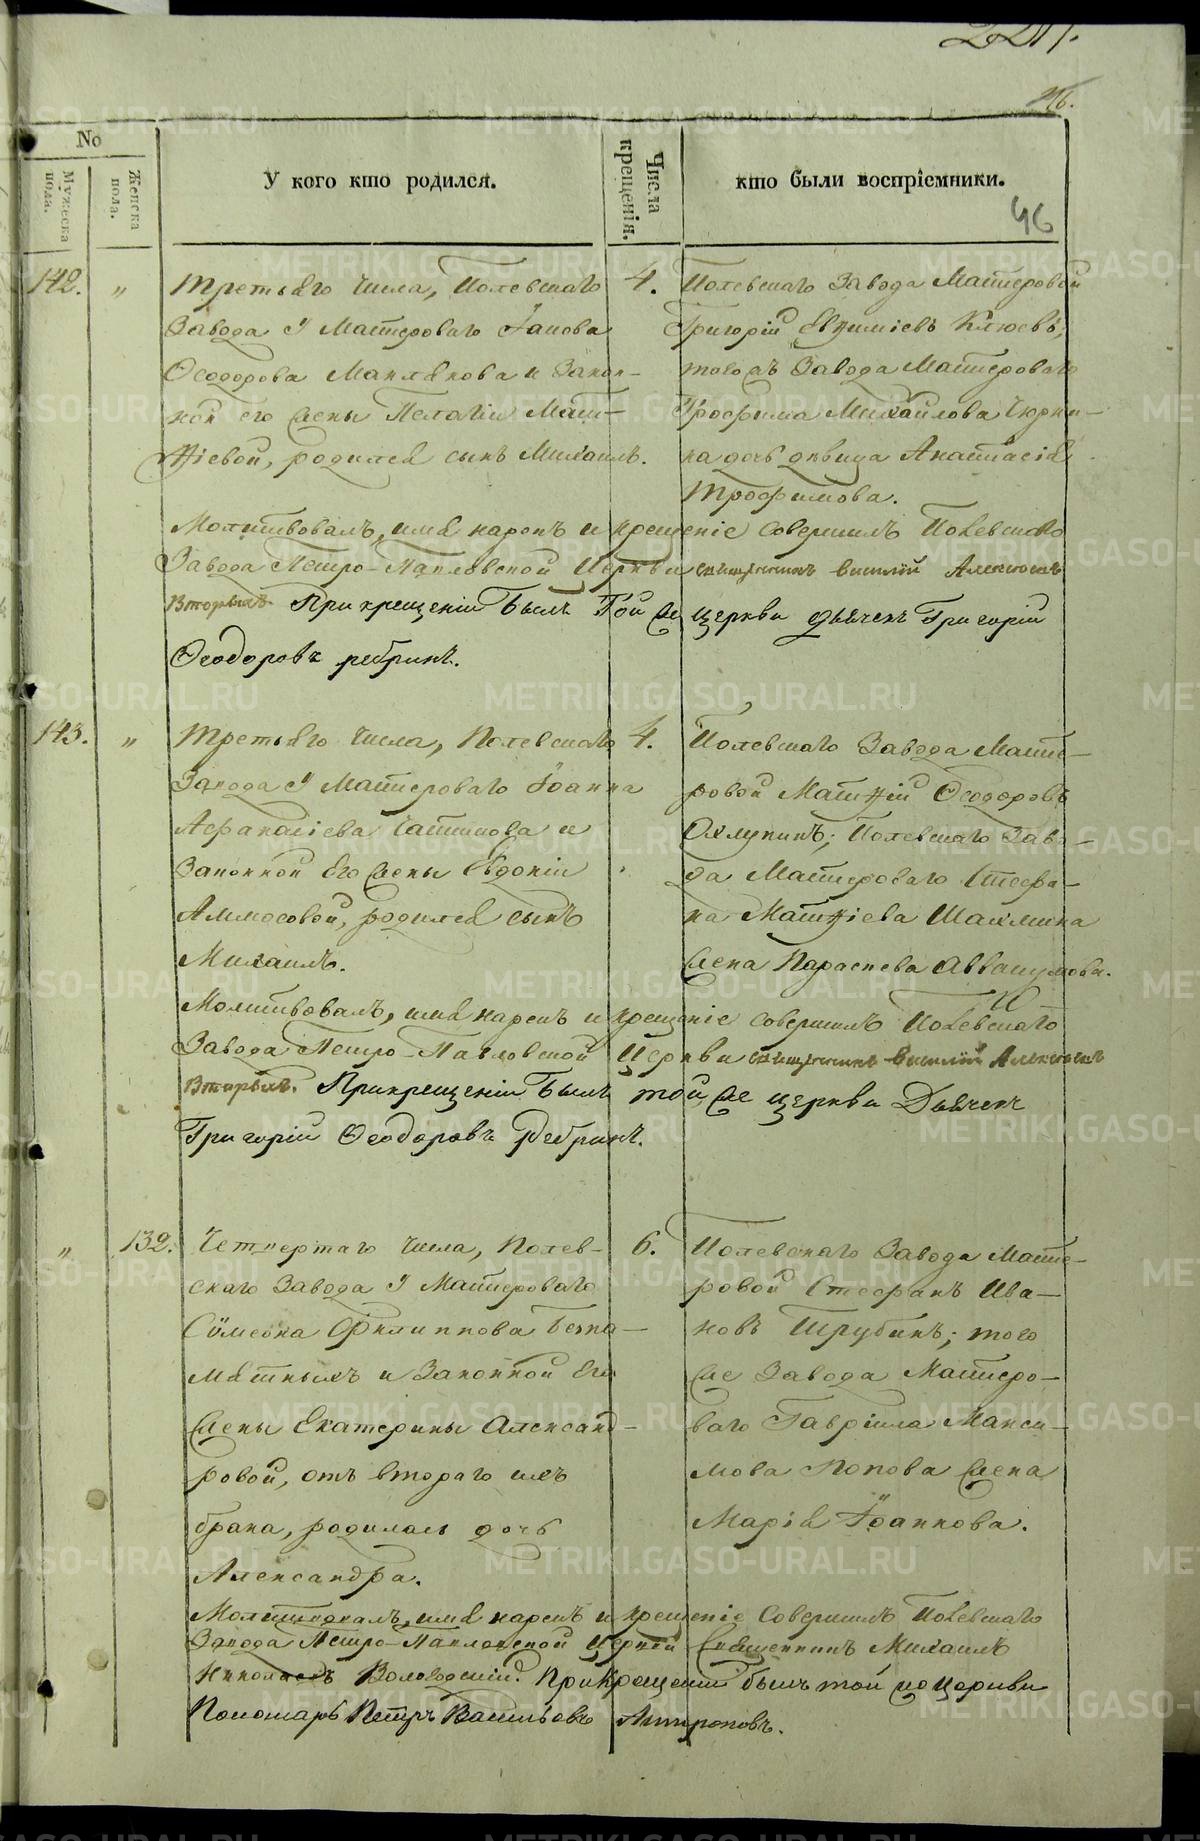 46.
No
Мужеска пола.
Женска пола.
У кого кто родился.
Числа крещенія.
кто были воспріемники.
46
142. „ Третьяго числа, Полевскаго
Завода у Мастероваго Іакова
Ѳеодорова Маклякова и Закон-
ной его жены Пелагіи Мат-
ѳіевой, родился сынъ Михаилъ.
4. Полевскаго Завода Мастеровой
Григорій Евѳиміевъ Клюевъ;
тогожъ Завода Мастероваго
Трофима Михайлова
дочь дѣвица Анастасія
Трофимова.
Молитвовалъ, имя нарекъ и крещеніе совершилъ Полевскаго
Завода Петро-Павловской Церкви священникъ Василій Алексѣевъ
Вторыхъ. При крещеніи былъ той же церкви дьячекъ Григорій
Ѳеодоровъ Ребринъ.
143. „ Третьяго числа, Полевскаго
Завода у Мастероваго Іоанна
Аѳанасіева Чатилова и
Законной Его жены Евдокіи
Аммосовой, родился сынъ
Михаилъ.
4. Полевскаго Завода Масте-
ровой Матѳій Ѳеодоровъ
Охлупинъ; Полевскаго Заво-
да Мастероваго Стефа-
на Матѳіева Шахмина
жена Параскева Аввакумова.
Молитвовалъ, имя нарекъ и крещеніе совершилъ Полевскаго
Завода Петро-Павловской Церкви священникъ Василій Алексѣевъ
Вторыхъ. При крещеніи былъ той же церкви Дьячекъ
Григорій Ѳеодоровъ Ребринъ.
„ 132. Четвертаго числа, Полев-
скаго Завода у Мастероваго
Сѵмеона Филиппова Безпа-
мятныхъ и Законной Его
жены Екатерины Александ-
ровой, отъ втораго ихъ
брака, родилась дочь
Александра.
6. Полевскаго Завода Масте-
ровой Стефанъ Ива-
новъ Шрубинъ; того
же Завода Мастеро-
ваго Гавріила Макси-
мова Попова жена
Марія Іоаннова.
Молитвовалъ, имя нарекъ и крещеніе совершилъ Полевскаго
Завода Петро-Павловской Церкви Священникъ Михаилъ
Николаевъ При крещеніи былъ той же церкви
Пономарь Петръ Васильевъ Антроповъ.
METRIKI.GASO-URAL.RU